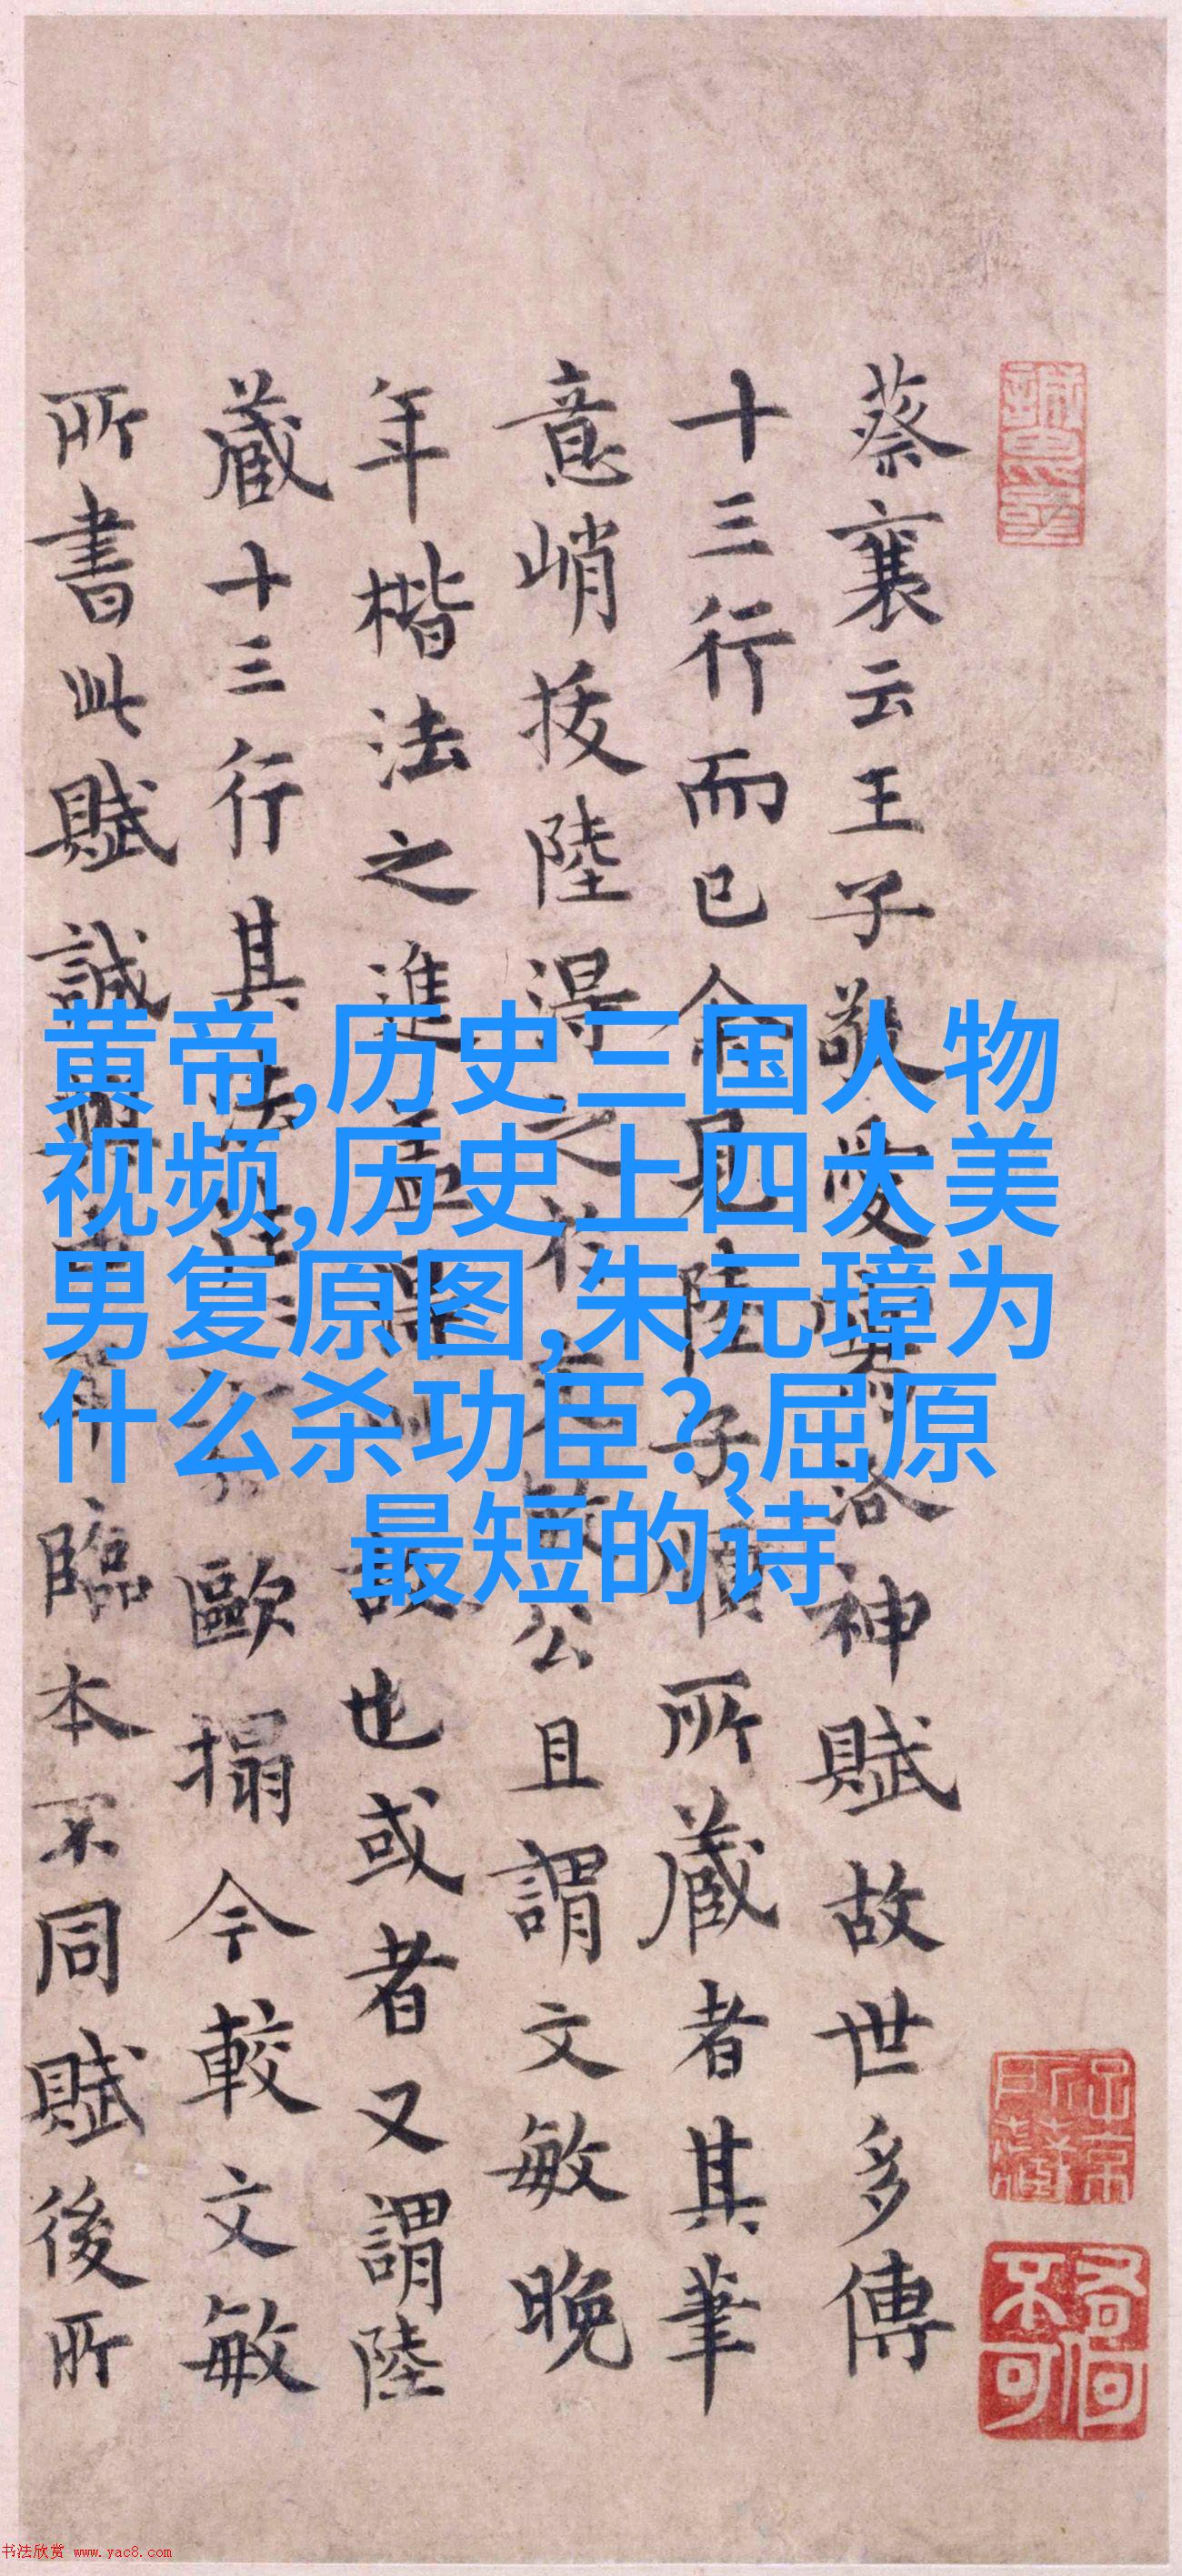 黄帝,历史三国人物
视频,历史上四大美
男复原图,朱元璋为
什么杀功臣?,屈原
最短的诗
蔡襄云王子敬愛寫洛神賦故世多傳
十三行而已余見陸子順所藏者其筆
意峭拔陸得之於文敏公且謂文敏晚
年楷法之進盖得
也或者又謂陸
藏十三行其
歐搨今較文敏
所書此賦誠
臨本不同賦後所
書法欣赏 www.yac8.com